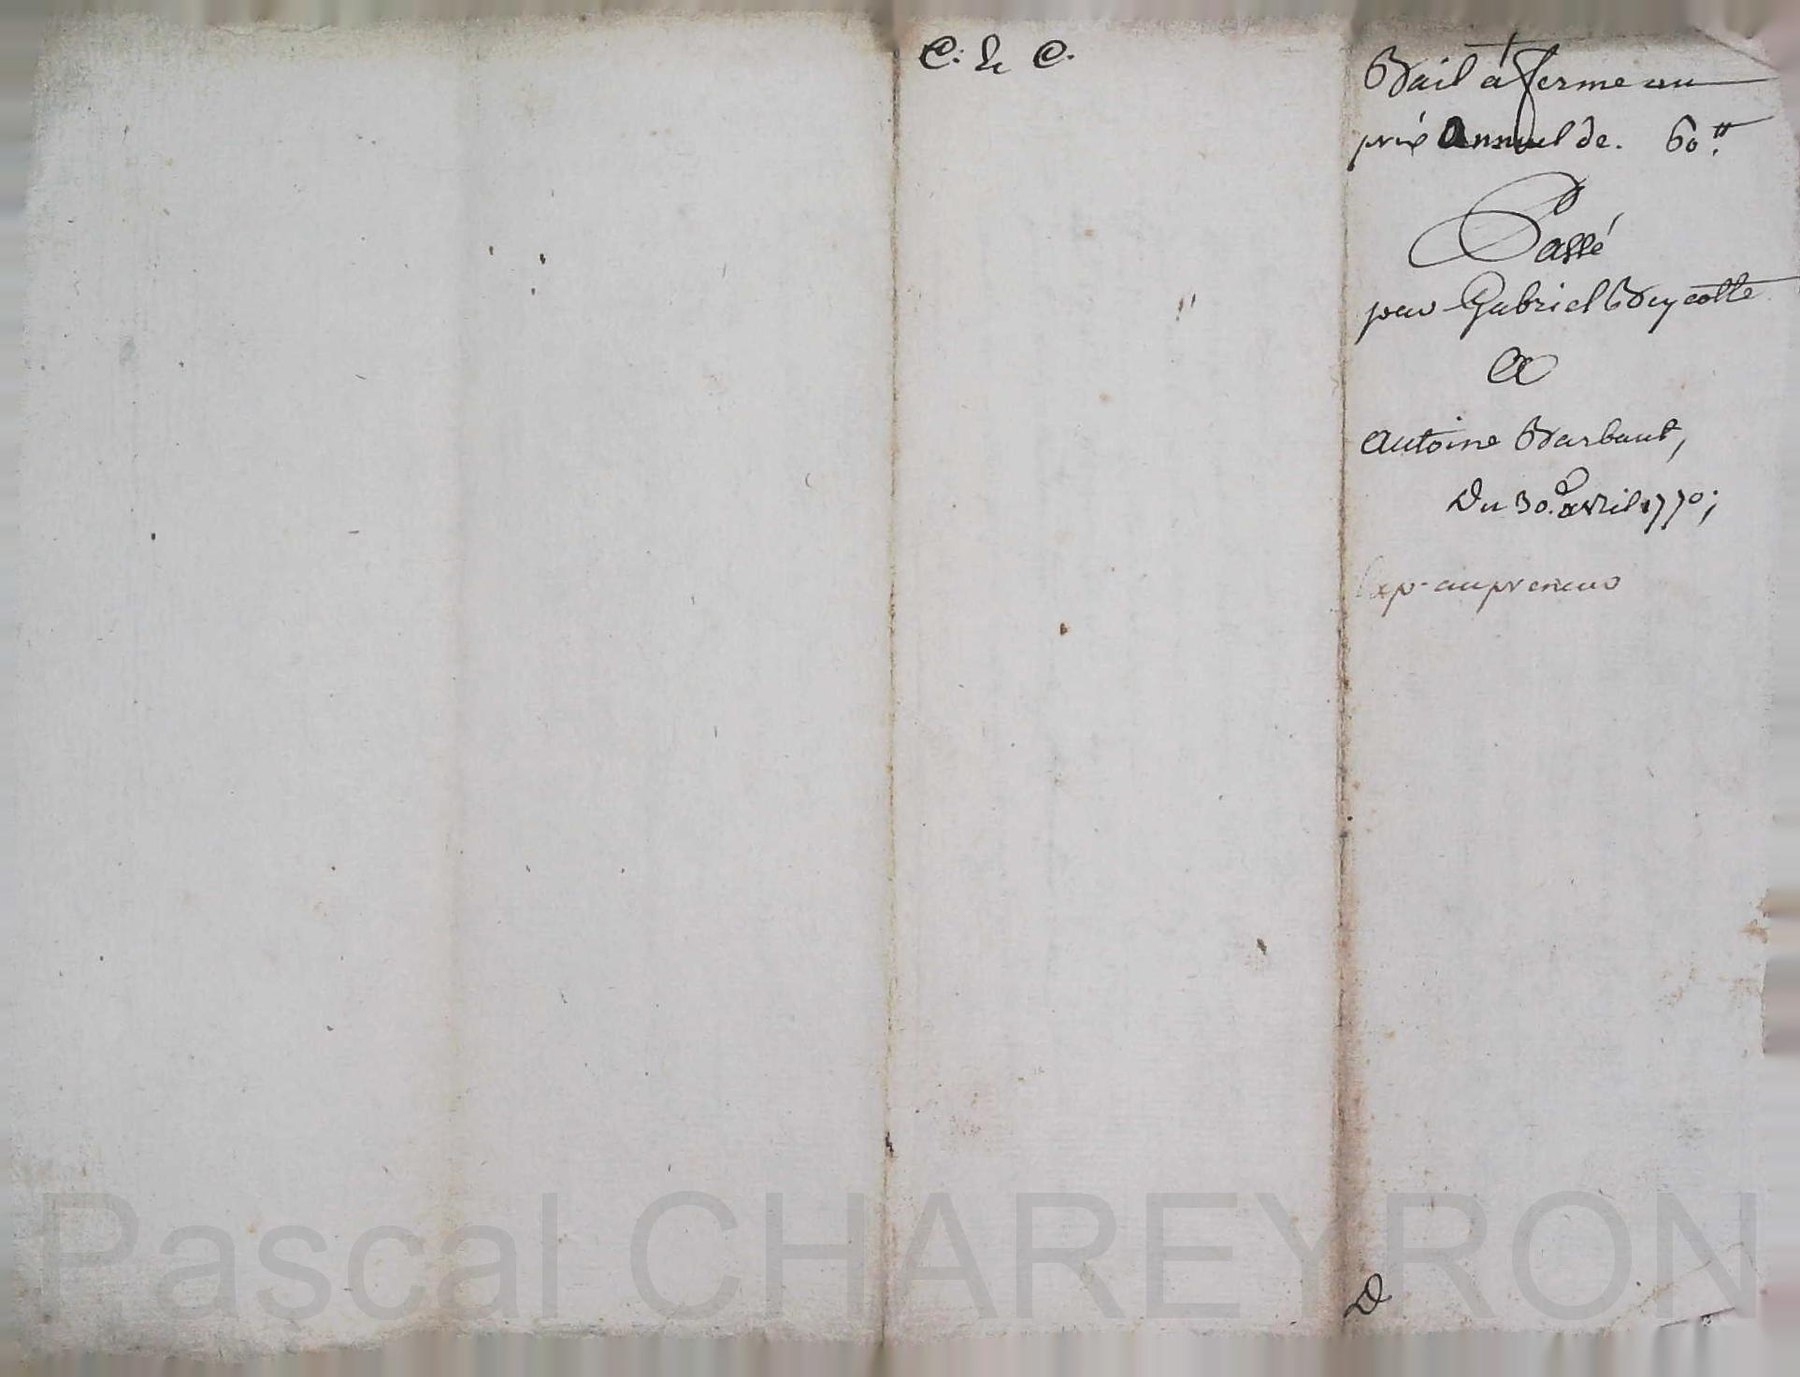 C. & C.
Bail á ferme au
prix Annuel de. 60.tt
Passé
par Gabriel Beycotte
A
Antoine Barbaut,
Du 30. avril 1770;
Exp. au preneur
D
Pascal CHAREYRON